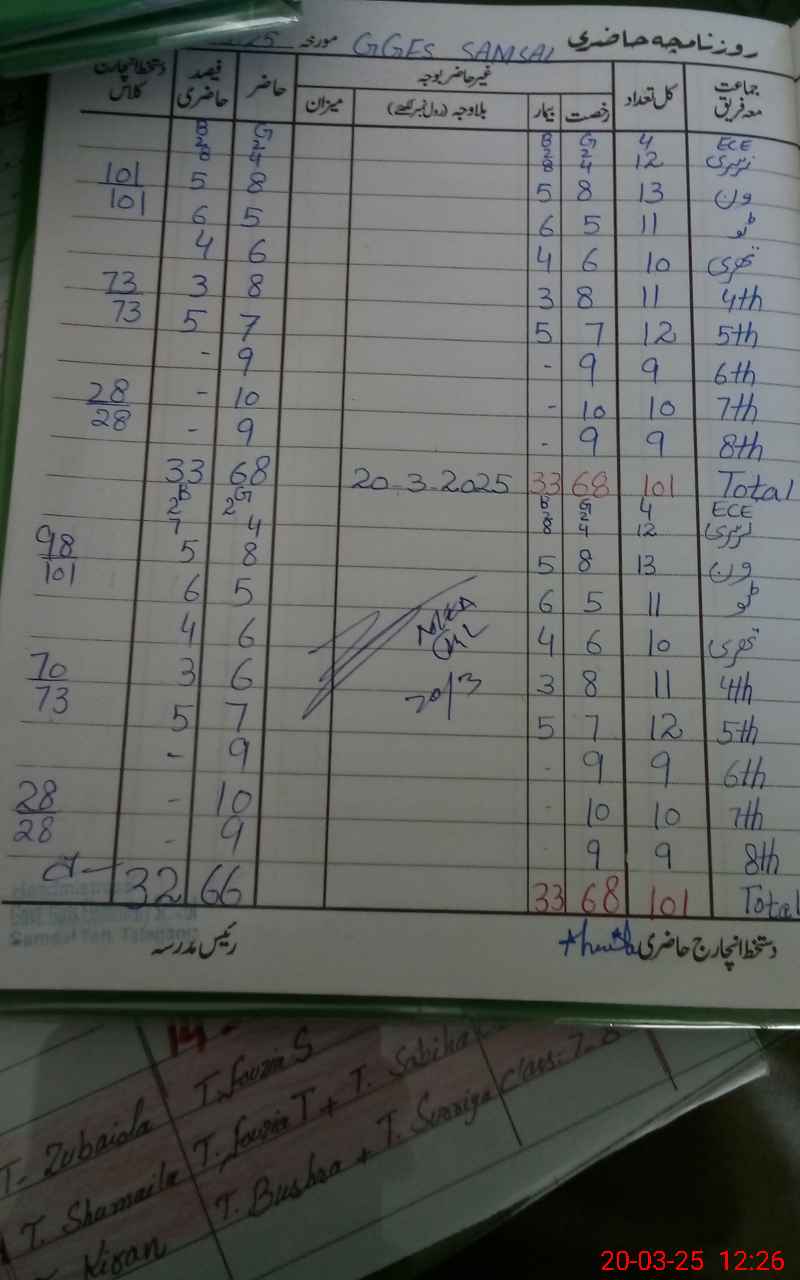 روزنامچہ حاضری GGES SAMSAI مورخہ 25
جماعت معہ فریق کل تعداد غیر حاضر بوجہ حاضر فیصد حاضری دستخط انچارج کلاس
رخصت بیمار بلاوجہ (رول نمبر لکھئے) میزان
ECE 4 G 2 B 2 G 2 B 2
نرسری 12 4 8 4 8
ون 13 8 5 8 5 101/101
ٹو 11 5 6 5 6
تھری 10 6 4 6 4
4th 11 8 3 8 3 73/73
5th 12 7 5 7 5
6th 9 9 - 9 -
7th 10 10 - 10 - 28/28
8th 9 9 - 9 -
Total 101 68 33 20-3-2025 68 33
ECE 4 G 2 B 2 2G 2B
نرسری 12 4 8 4 7
ون 13 8 5 8 5 98/101
ٹو 11 5 6 5 6
تھری 10 6 4 6 4
4th 11 8 3 20/3 6 3 70/73
5th 12 7 5 7 5
6th 9 9 - 9 -
7th 10 10 - 10 - 28/28
8th 9 9 - 9 -
Total 101 68 33 66 32
دستخط انچارج حاضری رئیس مدرسہ
Headmistress
14-
T. Zubaida T. Fouzia S
T. Shumaila T. Fouzia T + T. Sabika
Kiran T. Bushra + T. Sumaiya Class: 7-8
20-03-25 12:26